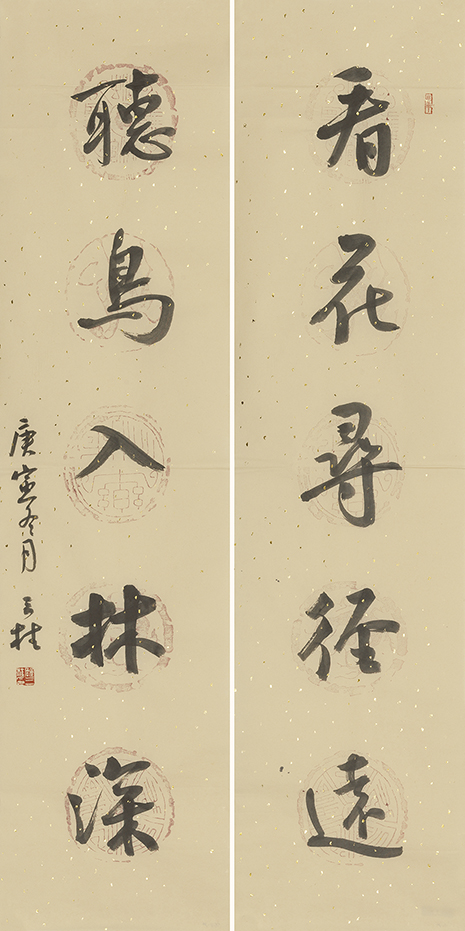 看花尋徑遠
聽鳥入林深
庚寅冬月